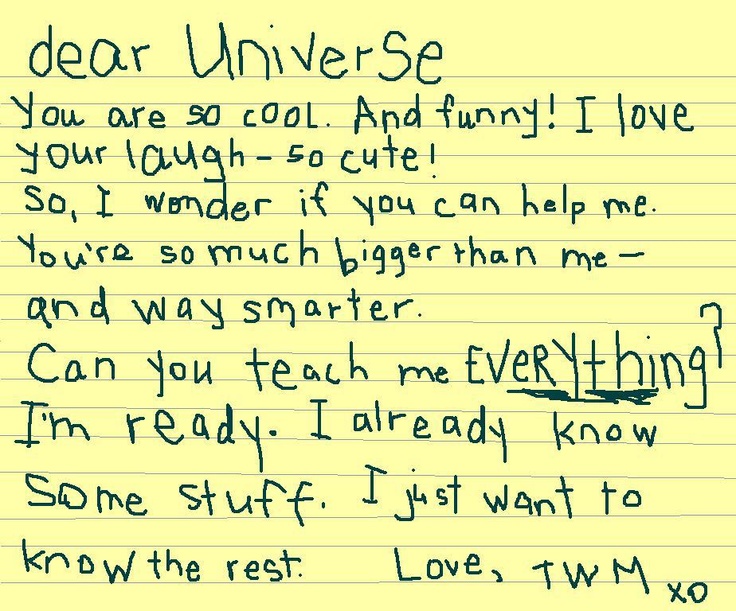 dear Universe
You are so cool. And funny! I love
your laugh - so cute!
So, I wonder if you can help me.
You're so much bigger than me -
and way smarter.
Can you teach me EVERYthing?
I'm ready. I already know
Some stuff. I just want to
know the rest. Love, TWM xo